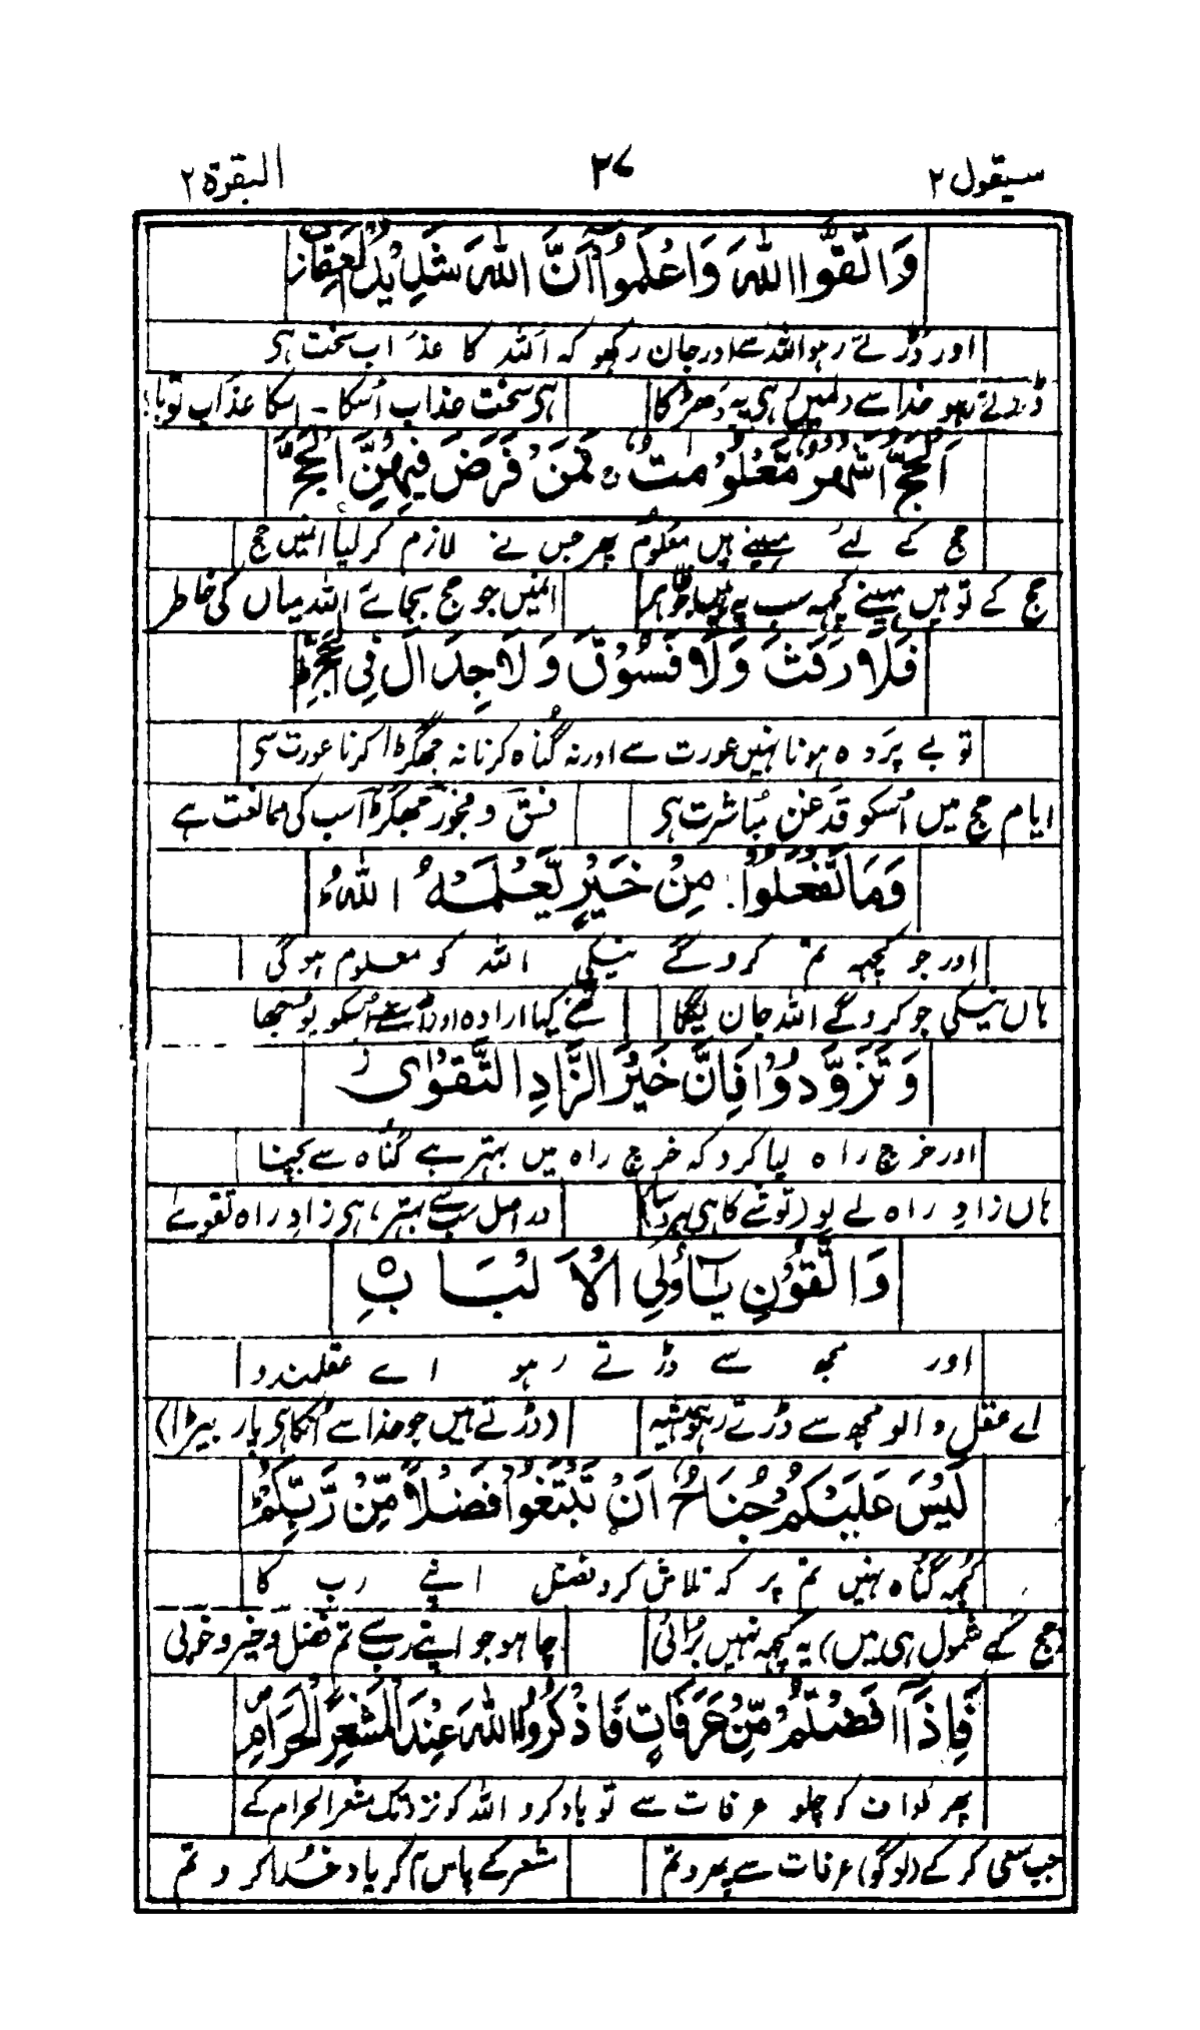 سیقول ۲ ۳۷ البقرۃ ۲
وَاتَّقُوا اللّٰهَ وَاعْلَمُوْٓا اَنَّ اللّٰهَ شَدِیْدُ الْعِقَابِ
اور ڈرتے رہو اللہ سے اور جان رکھو کہ اللہ کا عذاب سخت ہی
ڈرتے رہو خدا سے دلمیں ہی یہ دھڑکا ہی سخت عذاب اُسکا ـ اسکا عذاب توبا
اَلْحَجُّ اَشْهُرٌ مَّعْلُوْمٰتٌ ۚ فَمَنْ فَرَضَ فِیْهِنَّ الْحَجَّ
حج کے لیٔے مہینے ہیں معلوم پھر جس نے لازم کر لیا انمیں حج
حج کے تو ہیں مہینے کچھہ سب پہ ہیں جو ظاہر انمیں جو حج بجائے اللہ میاں کی خاطر
فَلَا رَفَثَ وَلَا فُسُوْقَ وَلَا جِدَالَ فِی الْحَجِّ ط
تو بے پردہ ہونا نہیں عورت سے اور نہ گناہ کرنا نہ جھگڑا کرنا عورت سی
ایام حج میں اُسکو قدغن مُباشرت ہی فسق و فجور جھگڑا سب کی ممالغت ہے
وَمَا تَفْعَلُوْا مِنْ خَیْرٍ یَّعْلَمْهُ اللّٰهُ
اور جو کچھہ تم کروگے نیکی اللہ کو معلوم ہوگی
ہاں نیکی جو کروگے اللہ جان لیگا تمنے کیا ارادہ اور اُسنے اُسکو بوسمجھا
وَتَزَوَّدُوْا فَاِنَّ خَیْرَ الزَّادِ التَّقْوٰی ز
اور خرچ راہ لیا کرو کہ خرچ راہ میں بہتر ہے گناہ سے بچنا
ہاں زادِ راہ لے لو (توشے کا ہی دراصل سب سے بہتر، ہی زادِ راہ تقوے
وَاتَّقُوْنِ یٰٓاُولِی الْاَلْبَابِ ۝
اور مجھ سے ڈرتے رہو اے عقلمندو
اے عقل والو مجھ سے ڈرتے رہو ہمیشہ (ڈرتے ہیں جو خدا سے اُنکا ہی پار بیڑا)
لَیْسَ عَلَیْكُمْ جُنَاحٌ اَنْ تَبْتَغُوْا فَضْلًا مِّنْ رَّبِّكُمْ ط
کچھہ گناہ نہیں تم پر کہ تلاش کرو فضل اپنے رب کا
(حج کے شمول ہی میں) یہ کچھہ نہیں برُائی چاہو جو اپنے رب سے تم فضل و خیر و خوبی
فَاِذَآ اَفَضْتُمْ مِّنْ عَرَفَاتٍ فَاذْكُرُوا اللّٰهَ عِنْدَ الْمَشْعَرِ الْحَرَامِ ص
پھر طواف کو چلو عرفات سے تو یاد کرو اللہ کو نزدیک مشعر الحرام کے
جب سعی کر کے (لوگو) عرفات سے پھرو تم مشعر کے پاس آ کر یادِ خُدا کرو تم